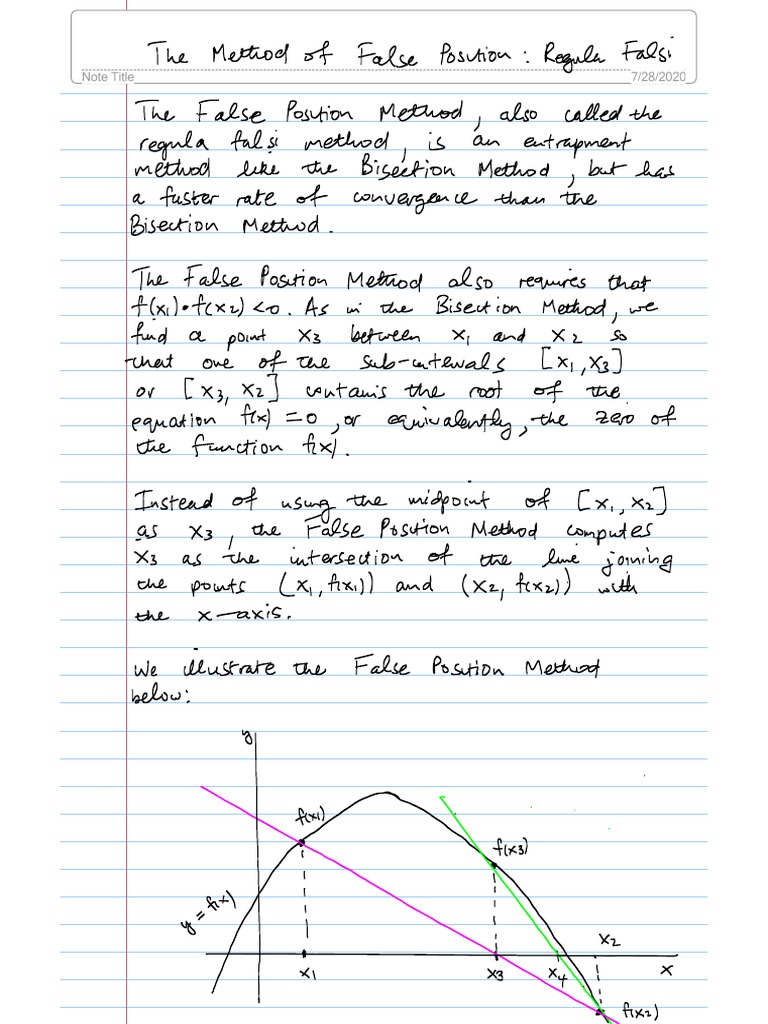 The Method of False Position: Regula Falsi
Note Title
7/28/2020
The False Position Method, also called the
regula falsi method, is an entrapment
method like the Bisection Method, but has
a faster rate of convergence than the
Bisection Method.
The False Position Method also requires that
f(x1)•f(x2) <0. As in the Bisection Method, we
find a point x3 between x1 and x2 so
that one of the sub-intervals [x1, x3]
or [x3, x2] contains the root of the
equation f(x) = 0, or equivalently, the zero of
the function f(x).
Instead of using the midpoint of [x1, x2]
as x3, the False Position Method computes
x3 as the intersection of the line joining
the points (x1, f(x1)) and (x2, f(x2)) with
the x-axis.
We illustrate the False Position Method
below:
y
f(x1)
f(x3)
y = f(x)
x2
x1
x3
x4
x
f(x2)